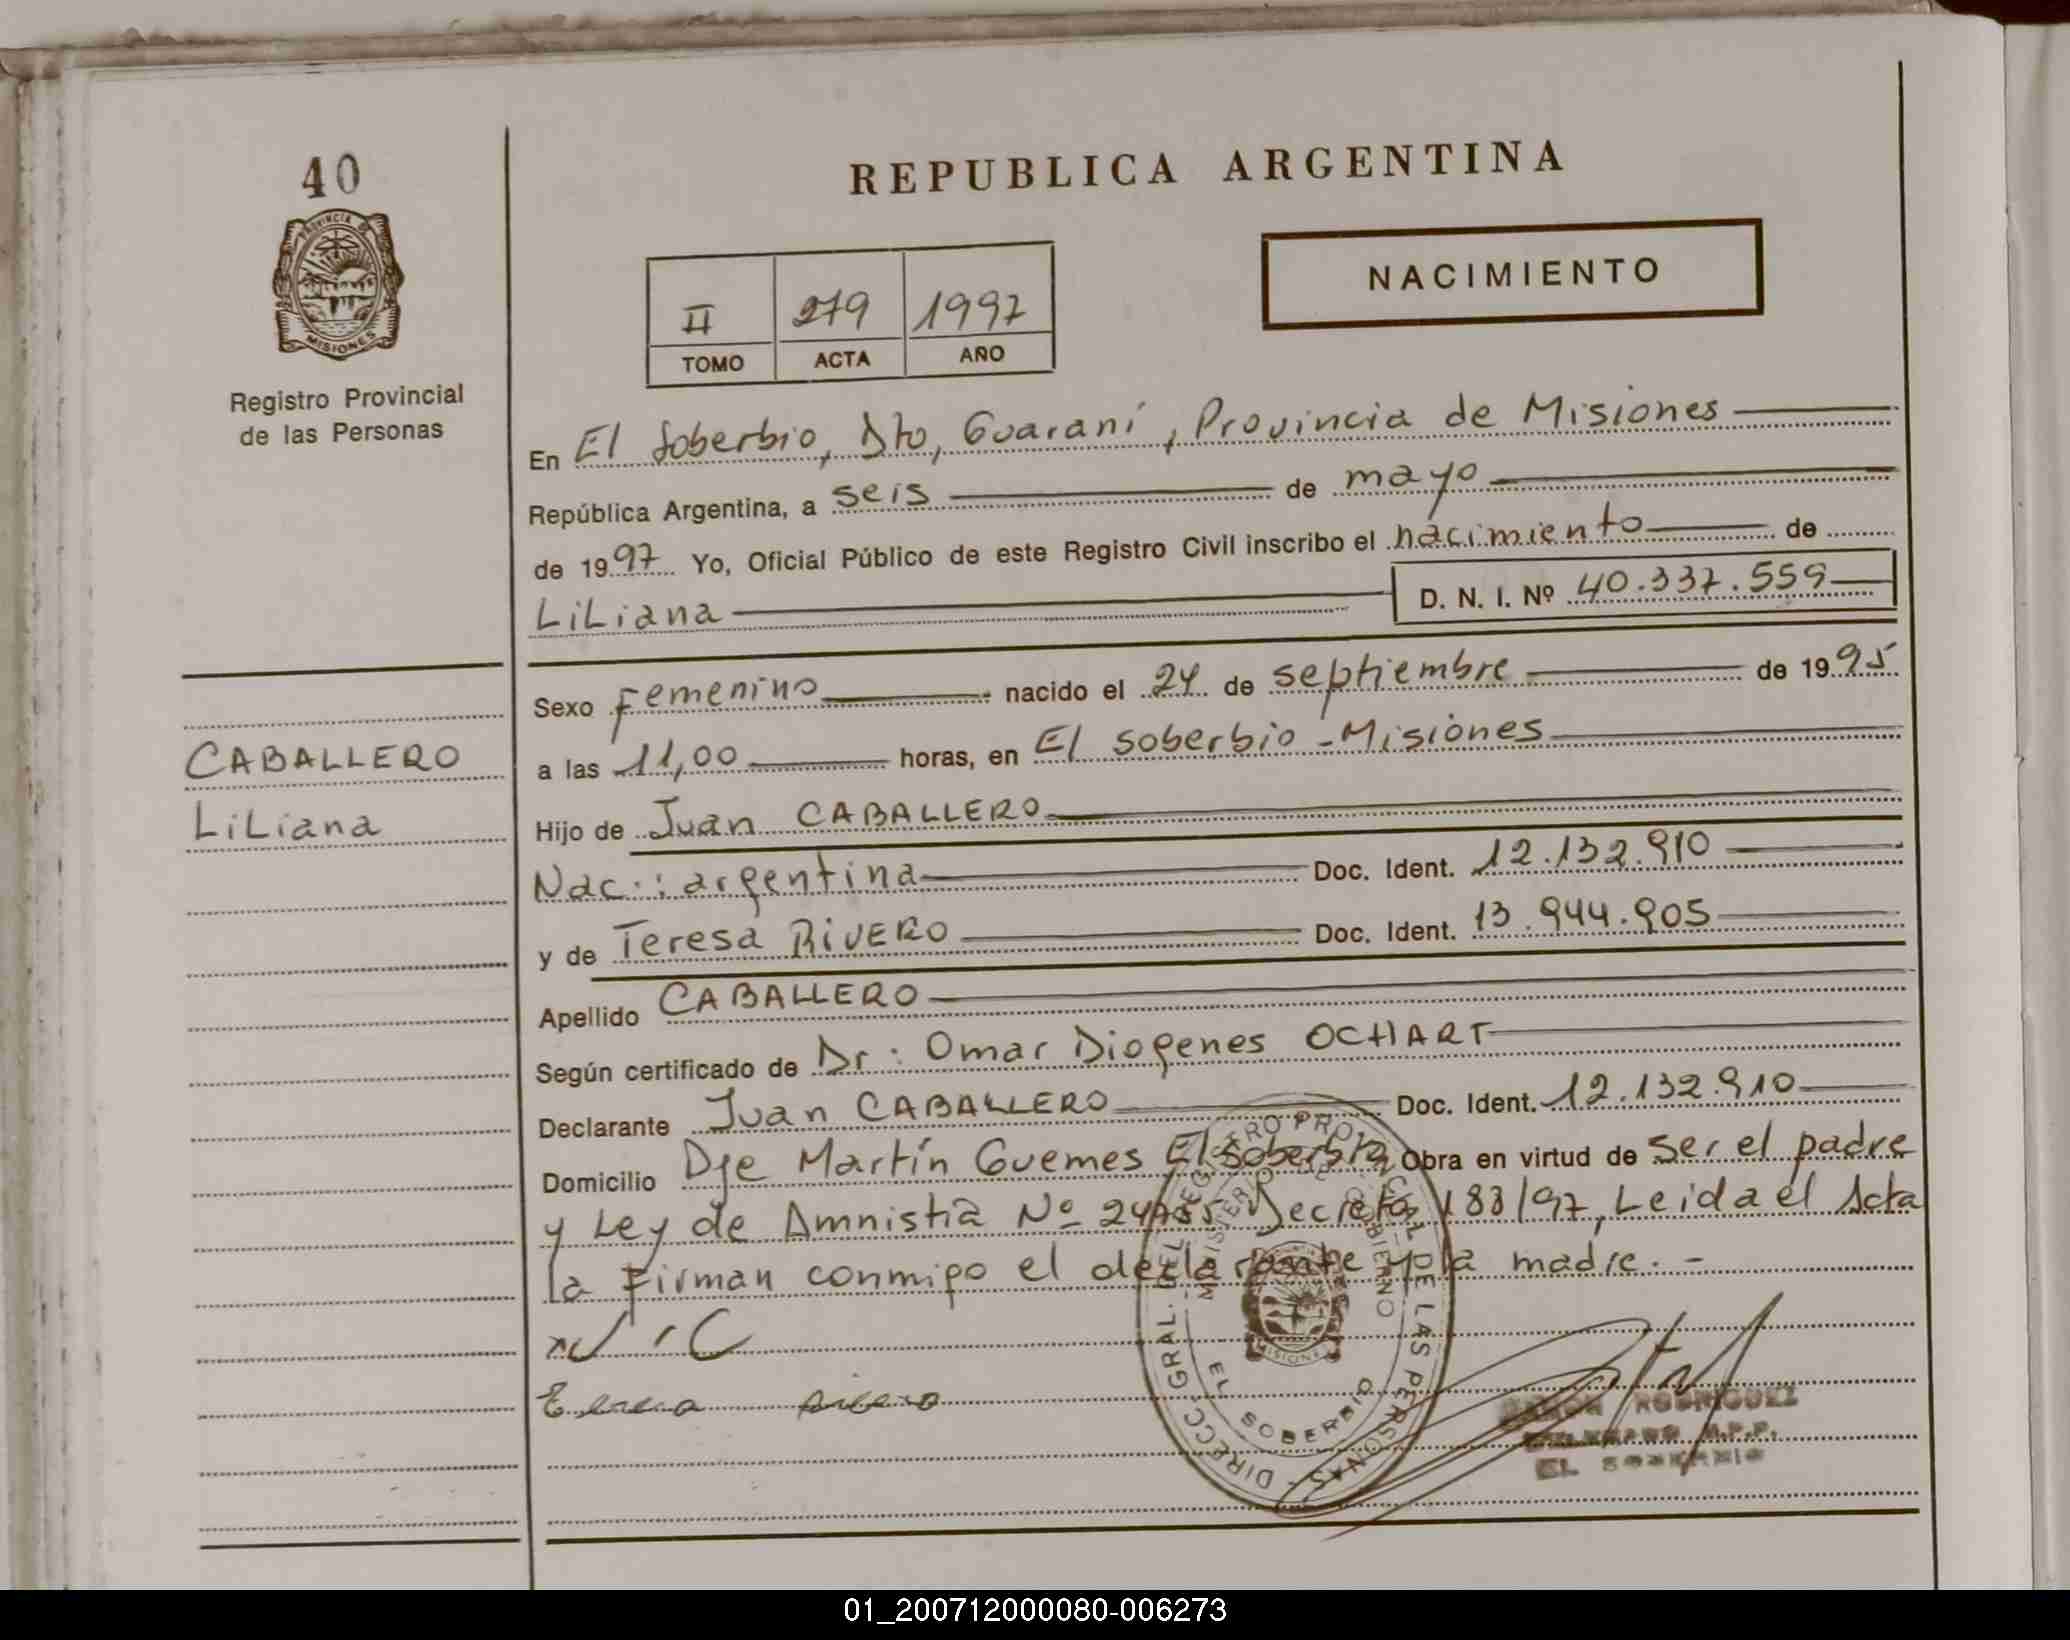 40
PROVINCIA DE
MISIONES
Registro Provincial
de las Personas
REPUBLICA ARGENTINA
NACIMIENTO
II 279 1997
TOMO ACTA AÑO
En El Soberbio, Dto, Guaraní, Provincia de Misiones
República Argentina, a seis de mayo
de 1997 Yo, Oficial Público de este Registro Civil inscribo el nacimiento de
LiLiana D. N. I. Nº 40.337.559
Sexo Femenino nacido el 24 de septiembre de 1995
a las 11,00 horas, en El soberbio - Misiones
CABALLERO
LiLiana
Hijo de Juan CABALLERO
Nac.: argentina Doc. Ident. 12.132.910
y de Teresa RiVERO Doc. Ident. 13.944.905
Apellido CABALLERO
Según certificado de Dr: Omar Diogenes OCHART
Declarante Juan CABALLERO Doc. Ident. 12.132.910
Domicilio Dje Martín Guemes El Soberbio Obra en virtud de ser el padre
y Ley de Amnistia Nº 24755 Decreto 188/97, Leida el Acta
la Firman conmigo el declarante y la madre. -
DIRECC. GRAL. DEL REGISTRO PROVINCIAL DE LAS PERSONAS
MINISTERIO DE GOBIERNO
MISIONES
EL SOBERBIO
RAMON RODRIGUEZ
M.P.P.
EL SOBERBIO
01_200712000080-006273